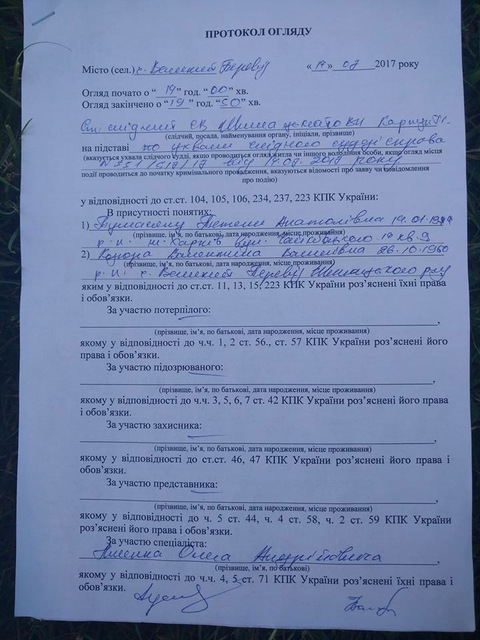 ПРОТОКОЛ ОГЛЯДУ
Місто (сел.) с. Великий Перевіз « 19 » 07 2017 року
Огляд почато о “ 19 ” год. “ 00 ” хв.
Огляд закінчено о “ 19 ” год. “ 50 ” хв.
Ст. слідчий СВ
(слідчий, посада, найменування органу, ініціали, прізвище)
на підставі ухвали слідчого судді справа
(вказується ухвала слідчого судді, якщо проводиться огляд житла чи іншого володіння особи, якщо огляд місця
2017 року
події проводиться до початку кримінального провадження, вказуються відомості про заяву чи повідомлення
про подію)
у відповідності до ст.ст. 104, 105, 106, 234, 237, 223 КПК України:
В присутності понятих:
1) Анатоліївна 19.01
(прізвище, ім’я, по батькові, дата народження, місце проживання)
р.н. м. Харків вул. 19 кв. 9
2) Валентина Василівна 26.10.1960
(прізвище, ім’я, по батькові, дата народження, місце проживання)
р.н. с. Великий Перевіз Шишацького р-ну
яким у відповідності до ст.ст. 11, 13, 15, 223 КПК України роз’яснені їхні права
і обов’язки.
За участю потерпілого:
(прізвище, ім’я, по батькові, дата народження, місце проживання)
якому у відповідності до ч.ч. 1, 2 ст. 56., ст. 57 КПК України роз’яснені його
права і обов’язки.
За участю підозрюваного:
(прізвище, ім’я, по батькові, дата народження, місце проживання)
якому у відповідності до ч.ч. 3, 5, 6, 7 ст. 42 КПК України роз’яснені його права і
обов’язки.
За участю захисника:
(прізвище, ім’я, по батькові, дата народження, місце проживання)
якому у відповідності до ст.ст. 46, 47 КПК України роз’яснені його права і
обов’язки.
За участю представника:
(прізвище, ім’я, по батькові, дата народження, місце проживання)
якому у відповідності до ч. 5 ст. 44, ч. 4 ст. 58, ч. 2 ст. 59 КПК України
роз’яснені його права і обов’язки.
За участю спеціаліста:
Олега Андрійовича
(прізвище, ім’я, по батькові)
якому у відповідності до ч.ч. 4, 5 ст. 71 КПК України роз’яснені їхні права і
обов’язки.